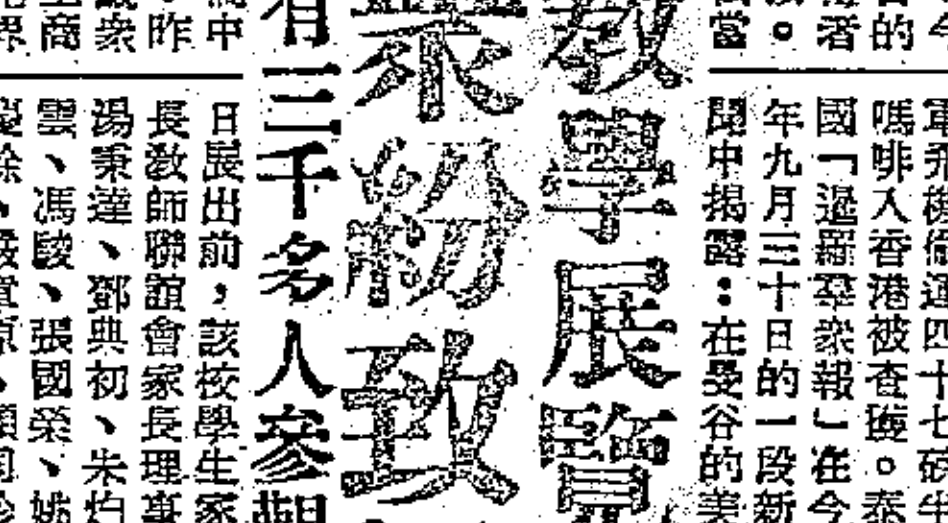 軍飛機偷運四十七磅
嗎啡入香港被查獲。泰
國「暹羅羣衆報」在今
年九月三十日的一段新
聞中揭露：在曼谷的美
者的
者
當
教學展覽
衆紛致
有三千名人參觀
中
昨
衆
商
界
日展出前，該校學生家
長敎師聯誼會家長理事
湯秉達、鄧典初、朱灼
雲、馮駿、張國榮、姚